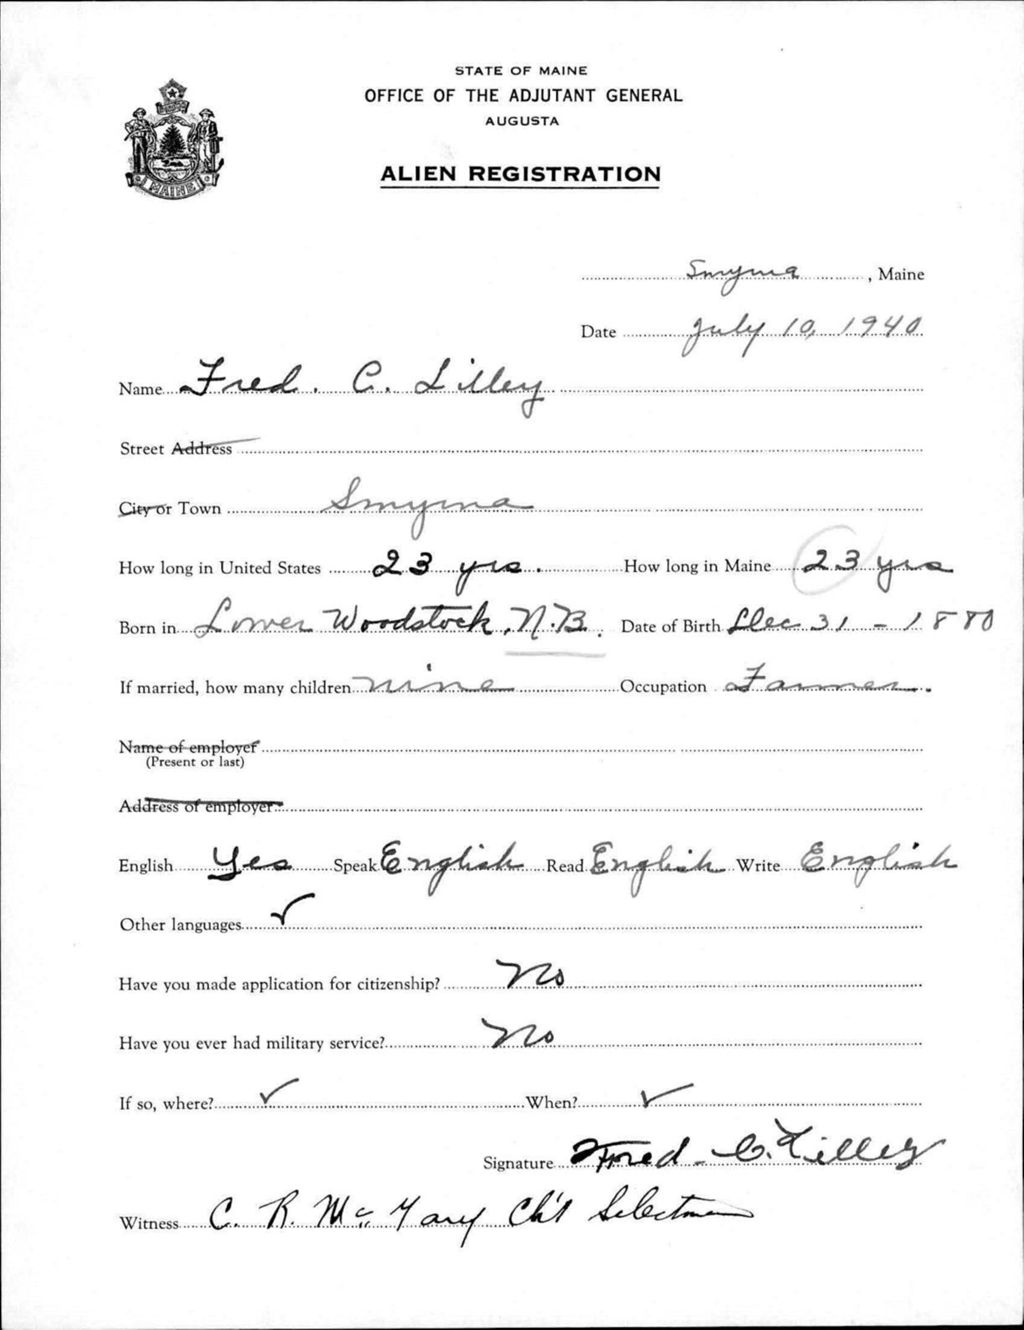 STATE OF MAINE
OFFICE OF THE ADJUTANT GENERAL
AUGUSTA
ALIEN REGISTRATION
MAINE
Smyrna, Maine
Date July 10, 1940
Name Fred. C. Lilley
Street Address
City or Town Smyrna
How long in United States 23 yrs. How long in Maine 23 yrs
Born in Lower Woodstock, N.B. Date of Birth Dec 31 - 1880
If married, how many children nine Occupation Farmer.
Name of employer
(Present or last)
Address of employer
English Yes Speak English Read English Write English
Other languages ✓
Have you made application for citizenship? No
Have you ever had military service? No
If so, where? ✓ When? ✓
Signature Fred C. Lilley
Witness C. R. Mc Gary Ch'l Selectman